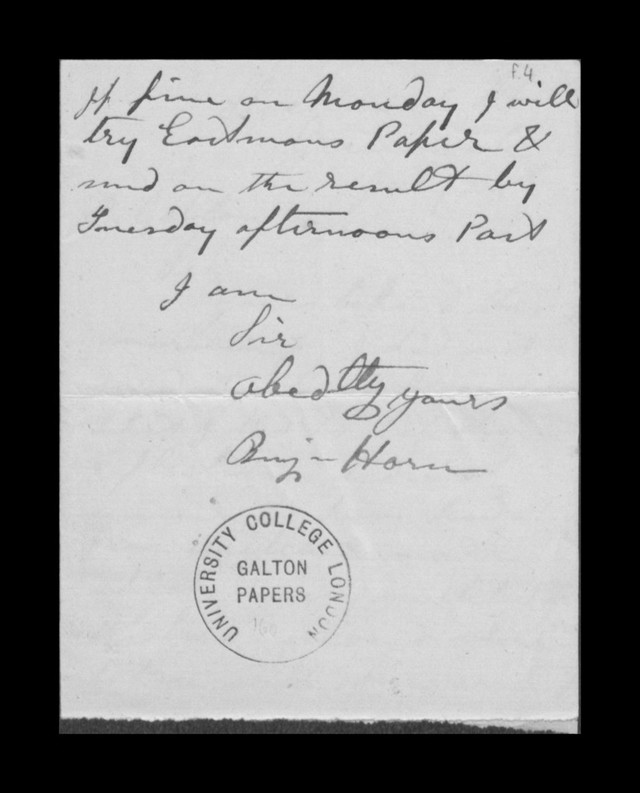 f.4.
If fine on Monday I will
try Eastmans Paper &
send on the result by
Tuesday afternoons Post
I am
Sir
Obedtly yours
Benj- Horn
UNIVERSITY COLLEGE LONDON
GALTON
PAPERS